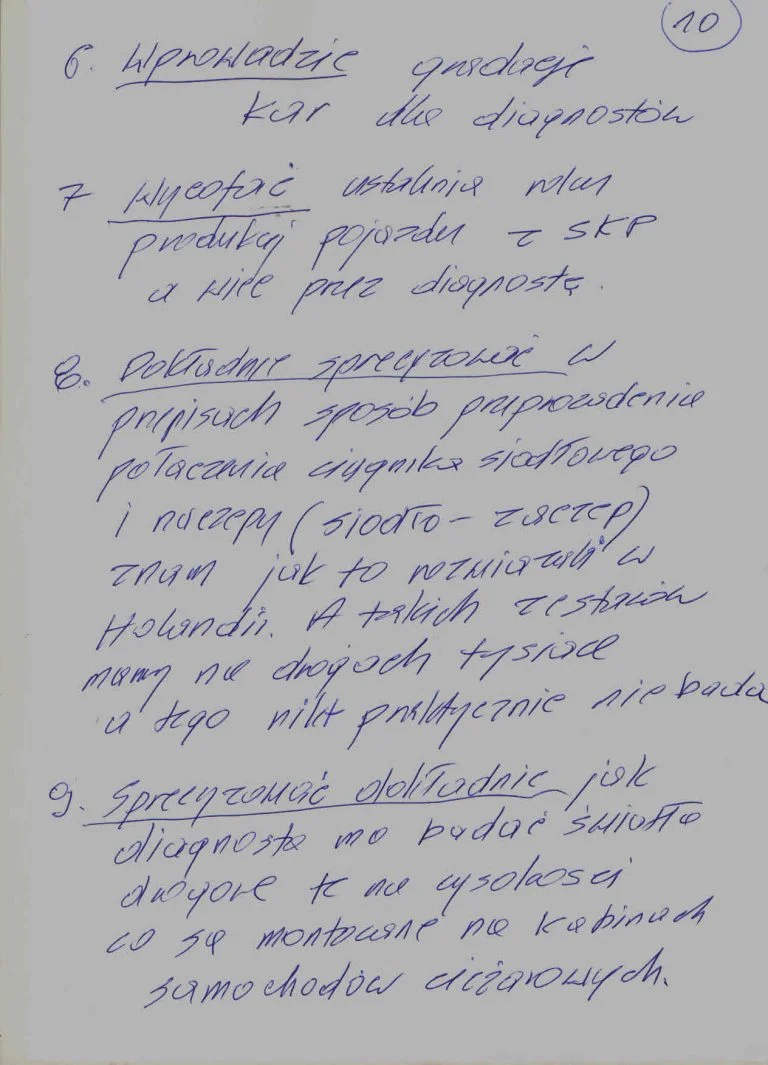 10
6. Wprowadzić gradację
kar dla diagnostów
7 Wycofać ustalenia roku
produkcji pojazdu z SKP
a więc przez diagnostę.
8. Dokładnie sprecyzować w
przepisach sposób przeprowadzenia
połączenia ciągnika siodłowego
i naczepy (siodło - zaczep)
znam jak to rozwiązali w
Holandii. A takich zestawów
mamy na drogach tysiące
a tego nikt praktycznie nie bada
9. Sprecyzować dokładnie jak
diagnosta ma badać światła
drogowe te na wysokości
co są montowane na kabinach
samochodów ciężarowych.